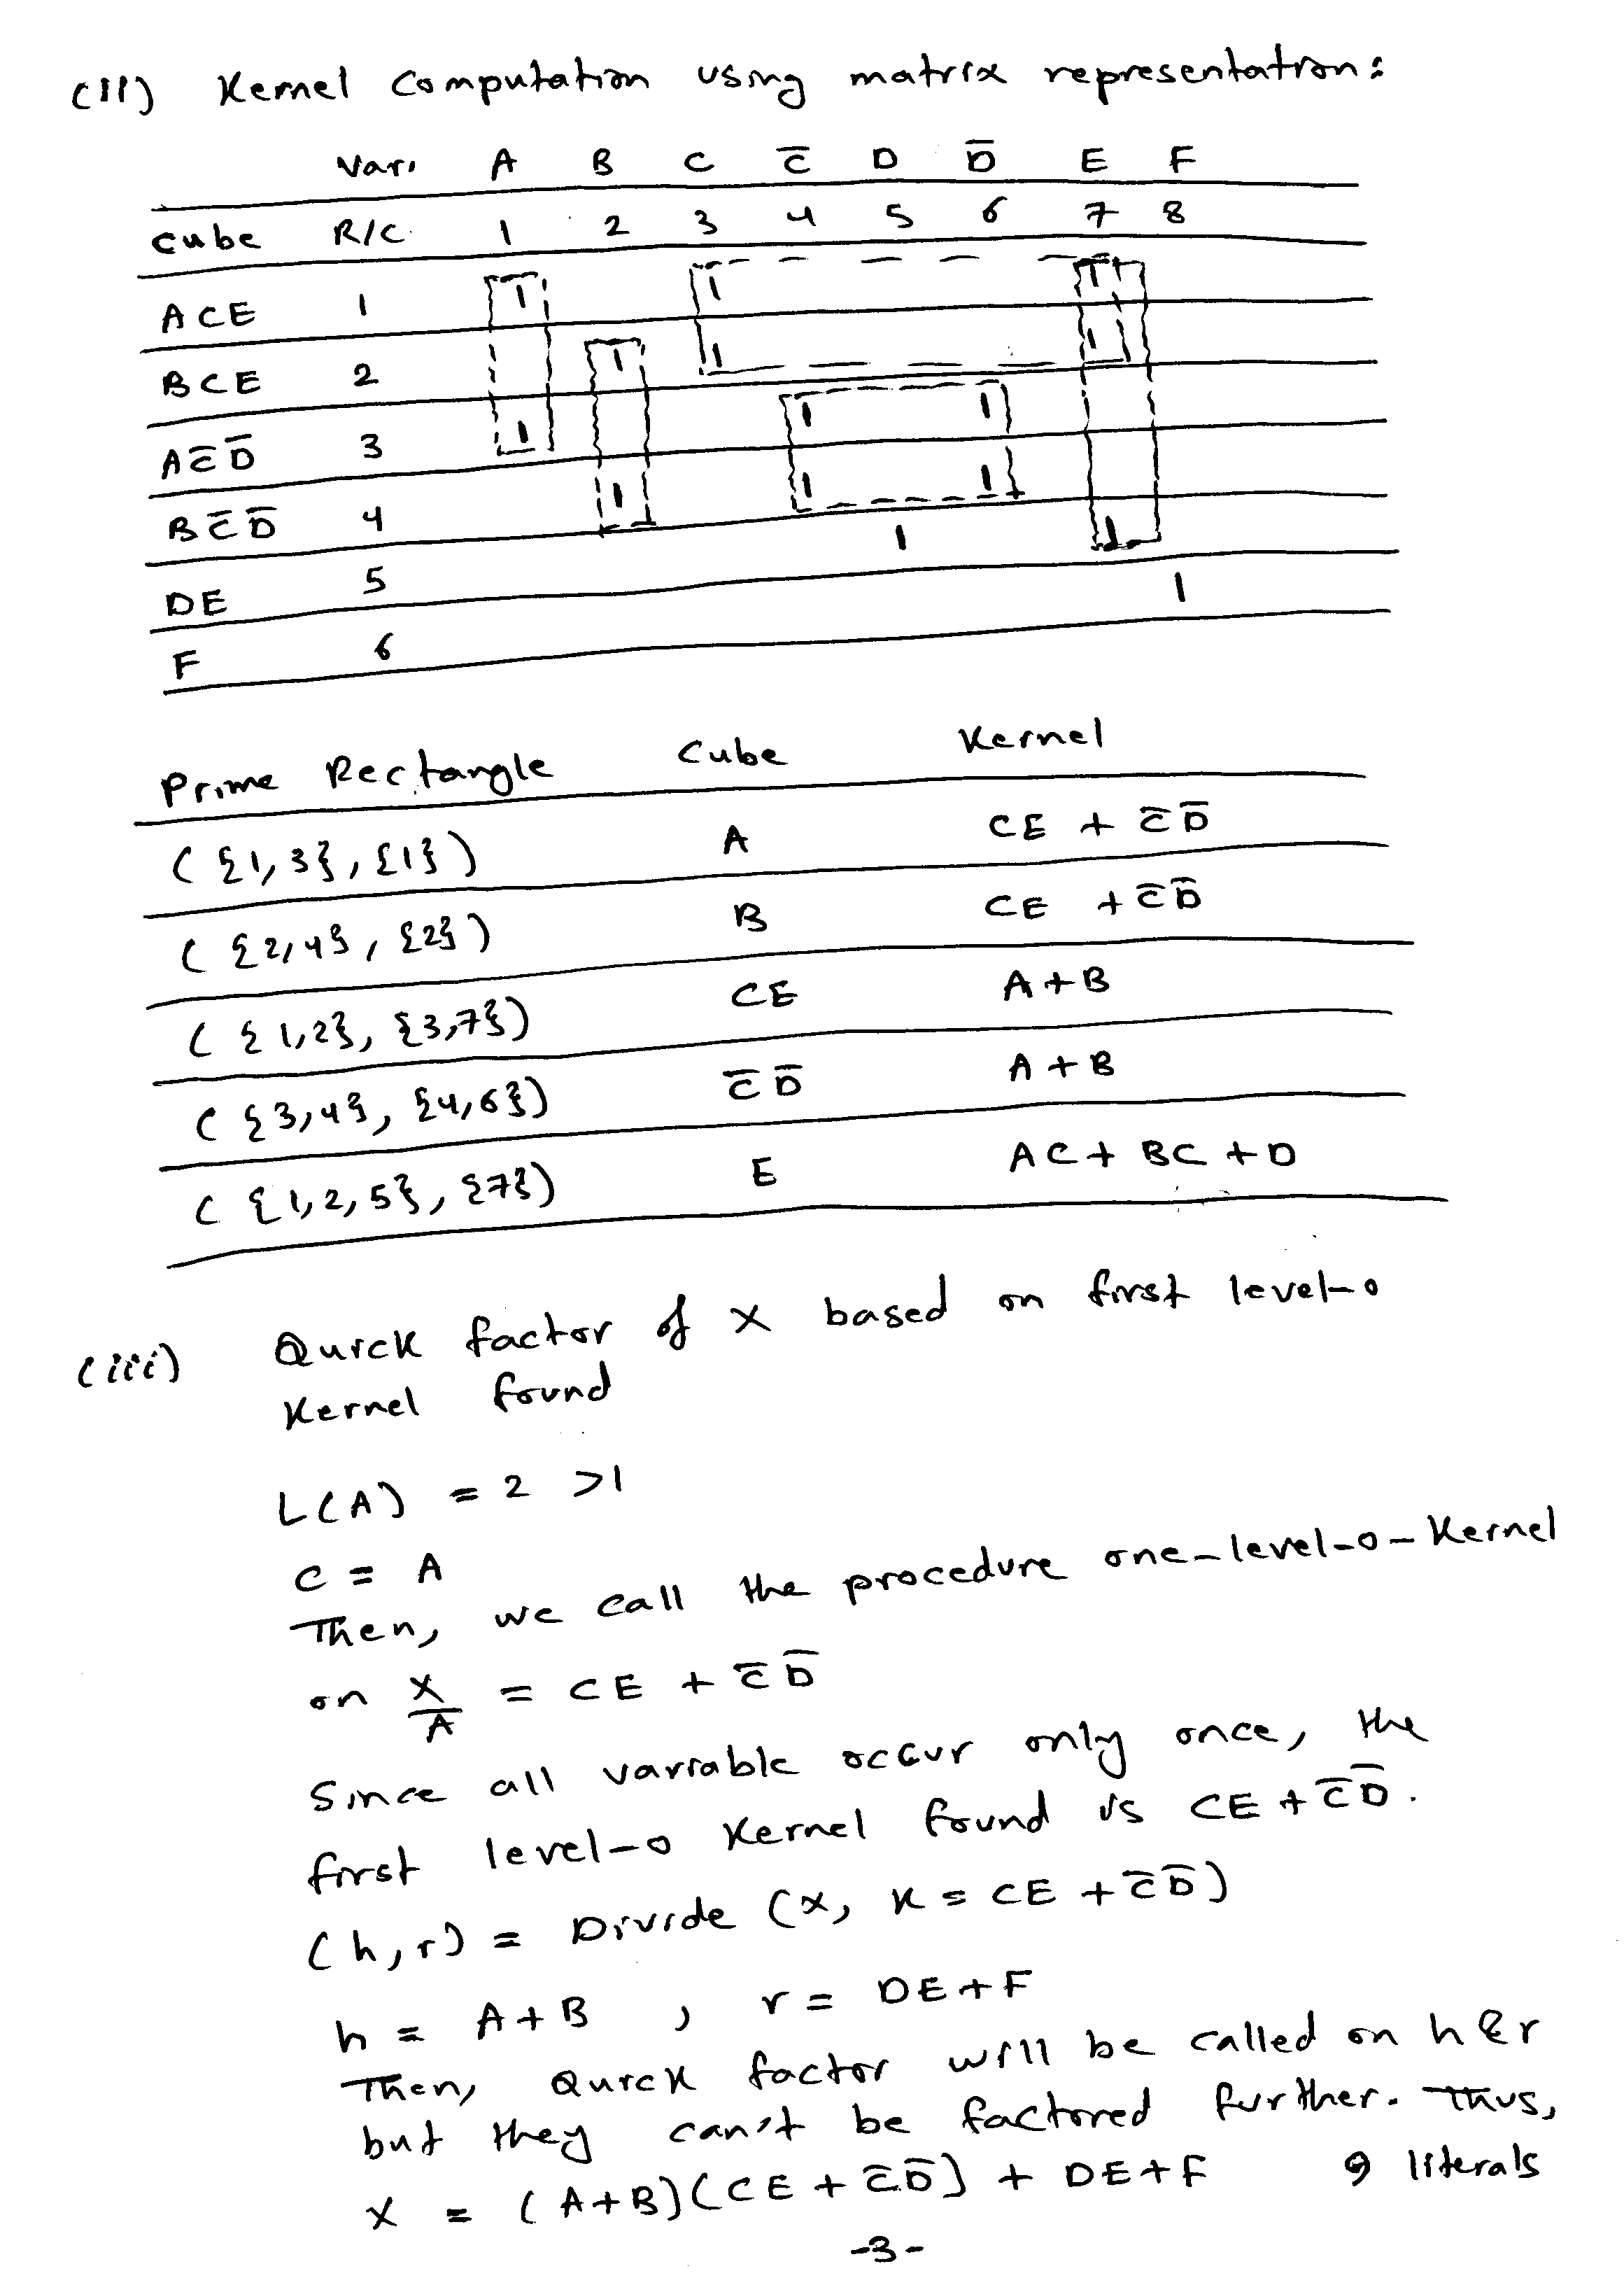 (ii) Kernel Computation using matrix representation:
Var. A B C C̅ D D̅ E F
Cube R/C 1 2 3 4 5 6 7 8
ACE 1 1 1 1
BCE 2 1 1 1
AC̅D̅ 3 1 1 1
BC̅D̅ 4 1 1 1
DE 5 1 1
F 6 1
Prime Rectangle Cube Kernel
({1,3},{1}) A CE + C̅D̅
({2,4},{2}) B CE + C̅D̅
({1,2},{3,7}) CE A+B
({3,4},{4,6}) C̅D̅ A+B
({1,2,5},{7}) E AC + BC + D
(iii) Quick factor of X based on first level-0
Kernel found
L(A) = 2 >1
C = A
Then, we call the procedure one-level-0-Kernel
on X/A = CE + C̅D̅
Since all variable occur only once, the
first level-0 Kernel found is CE + C̅D̅.
(h,r) = Divide (X, K = CE + C̅D̅)
h = A+B , r = DE+F
Then, Quick factor will be called on h & r
but they can't be factored further. Thus,
X = (A+B)(CE + C̅D̅) + DE+F 9 literals
-3-